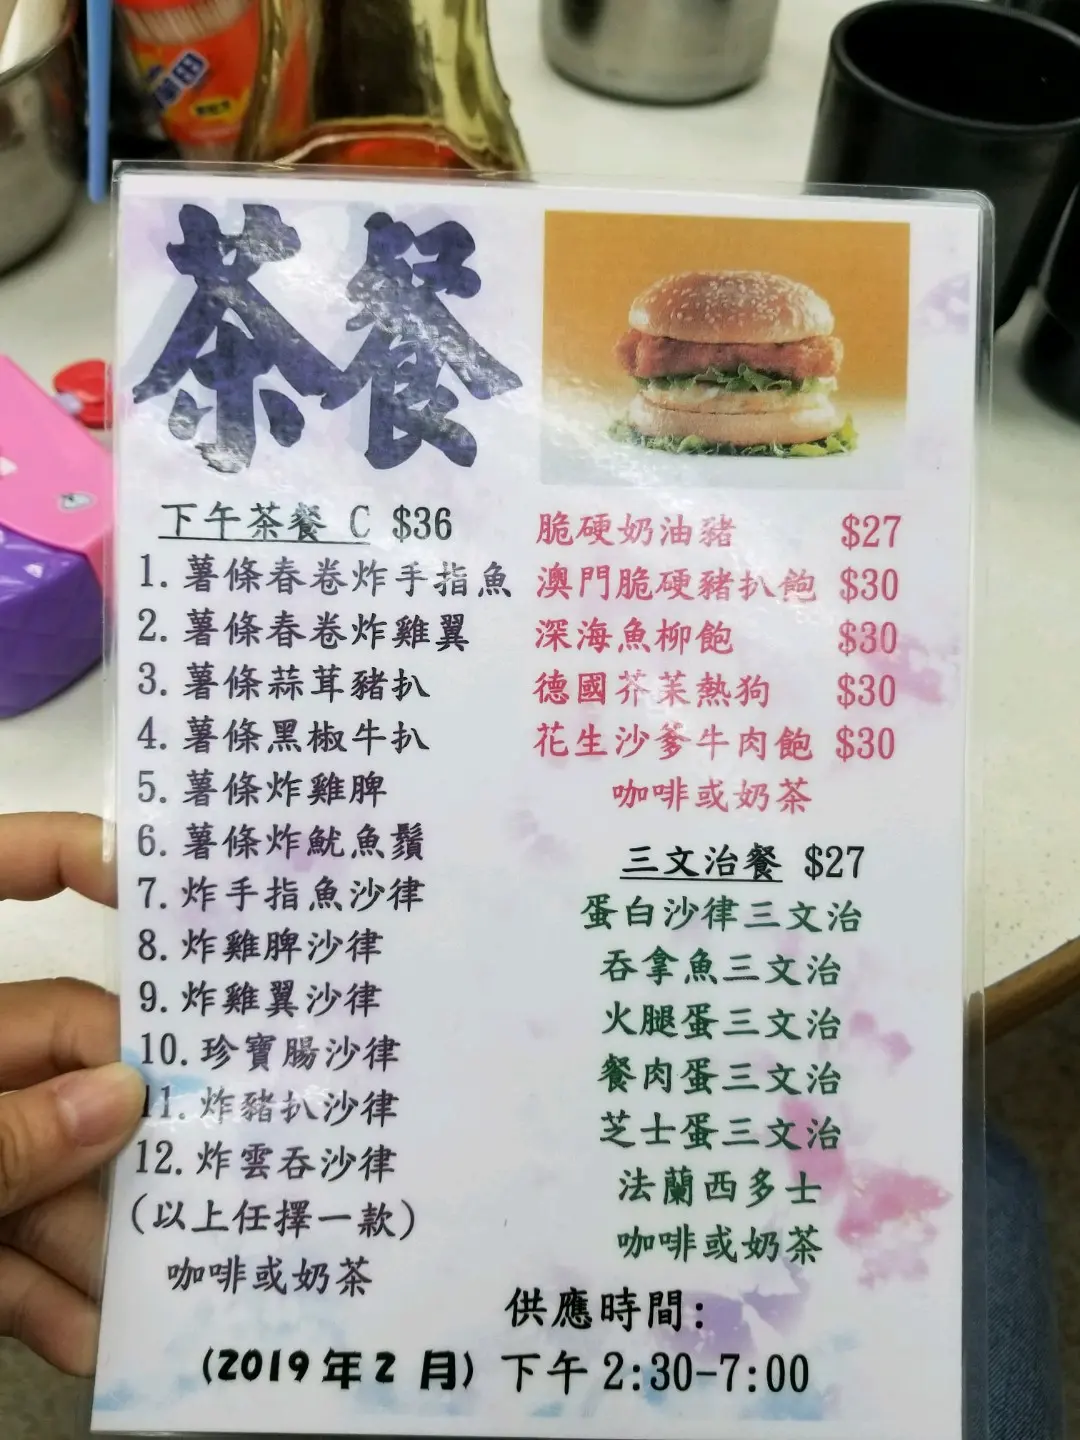 茶餐
下午茶餐 C $36
1. 薯條春卷炸手指魚
2. 薯條春卷炸雞翼
3. 薯條蒜茸豬扒
4. 薯條黑椒牛扒
5. 薯條炸雞脾
6. 薯條炸魷魚鬚
7. 炸手指魚沙律
8. 炸雞脾沙律
9. 炸雞翼沙律
10. 珍寶腸沙律
11. 炸豬扒沙律
12. 炸雲吞沙律
(以上任擇一款)
咖啡或奶茶
脆硬奶油豬 $27
澳門脆硬豬扒飽 $30
深海魚柳飽 $30
德國芥茉熱狗 $30
花生沙爹牛肉飽 $30
咖啡或奶茶
三文治餐 $27
蛋白沙律三文治
吞拿魚三文治
火腿蛋三文治
餐肉蛋三文治
芝士蛋三文治
法蘭西多士
咖啡或奶茶
供應時間:
(2019年2月) 下午2:30-7:00